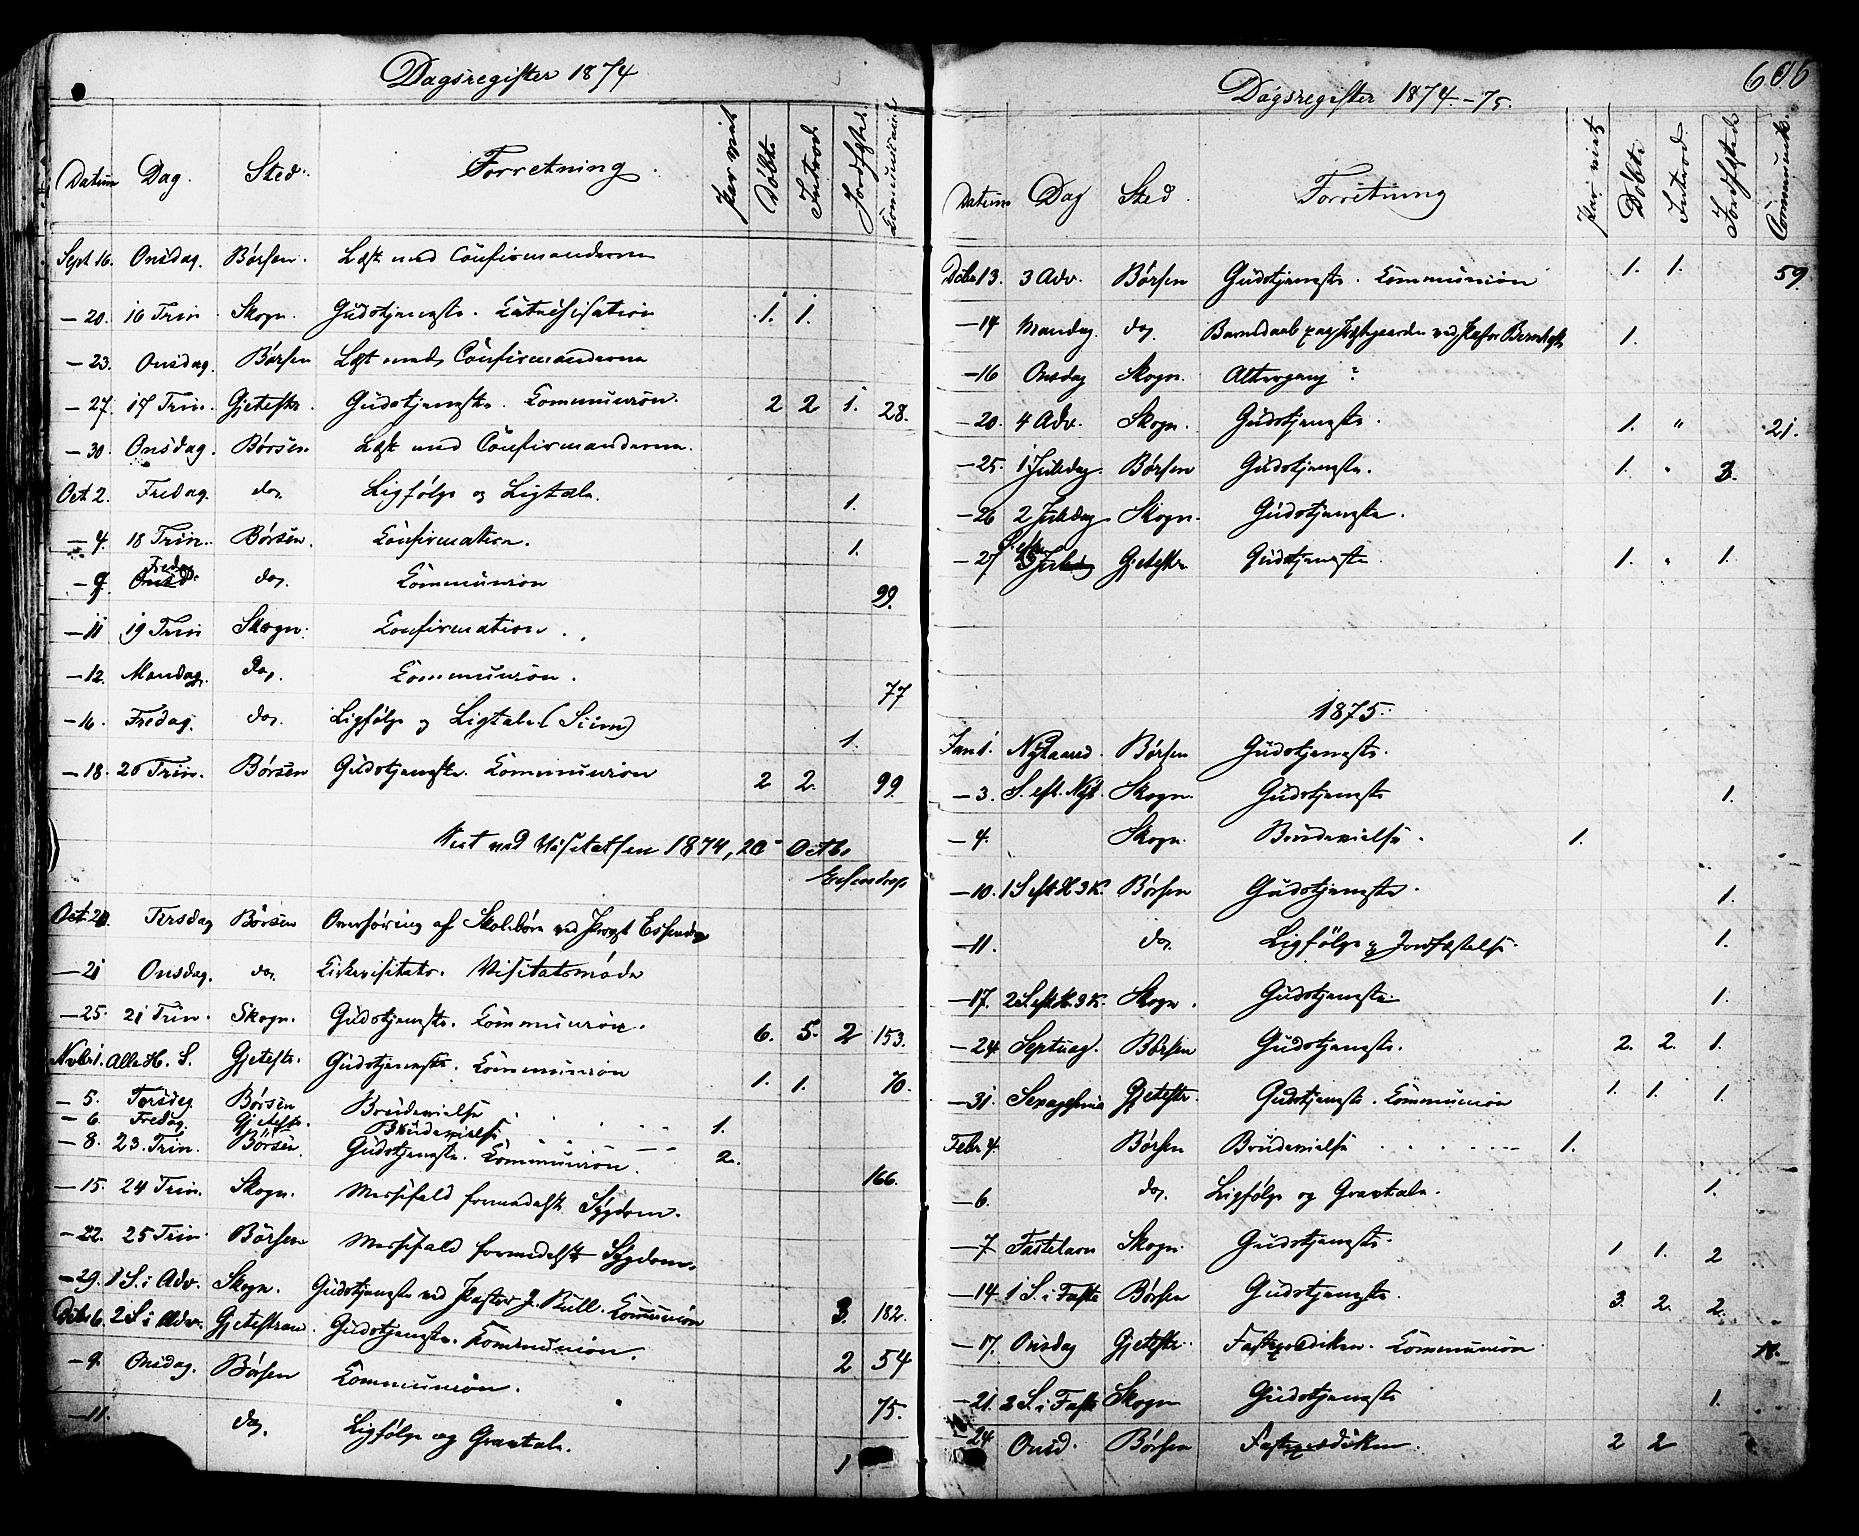 Dagsregister 1874
Datum Dag. Sted. Forretning. Par viet Døbte Introd Jordfæstede Communicant
Sept 16. Onsdag. Børsen. Læst med Confirmanderne
— 20. 16 Trin Skogn. Gudstjeneste. Catechisation 1. 1.
— 23. Onsdag. Børsen Læst med Confirmanderne
— 27. 17 Trin. Gjetestr. Gudstjeneste. Communion. 2 2 1. 28.
— 30. Onsdag. Børsen Læst med Confirmanderne.
Oct 2. Fredag. do. Ligfølge og Ligtale. 1.
— 4. 18 Trin. Børsen. Confirmation. 1.
— 9. Fredag do. Communion 99.
— 11 19 Trin Skogn. Confirmation.
— 12. Mandag. do. Communion. 77
— 16. Fredag. do. Ligfølge og Ligtale (Viium) 1.
— 18. 20 Trin. Børsen Gudstjeneste. Communion 2 2. 99.
Seet ved Visitatsen 1874, 20 Octbr
Essendrop
Oct. 20. Tirsdag Børsen Overhøring af Skolebørn ved Provst Essendrop
— 21 Onsdag. do. Kirkevisitats. Visitatsmøde
— 25. 21 Trin. Skogn. Gudstjeneste. Communion. 6. 5. 2 153.
Novbr 1. Alle H. S. Gjetestr. Gudstjeneste. Communion 1. 1. 70.
— 5. Torsdag Børsen Brudevielse
— 6. Fredag. Gjetestr. Brudevielse 1.
— 8. 23. Trin. Børsen. Gudstjeneste. Communion. 2. 166.
— 15. 24 Trin. Skogn. Messefald formedelst Sygdom.
— 22. 25 Trin. Børsen Messefald formedelst Sygdom.
— 29. 1 S. i Adv. Skogn. Gudstjeneste ved Pastor J. Bull. Communion 3. 182.
Decbr 6. 2 S. i Adv. Gjetestran. Gudstjeneste. Communion. 2 54
— 9. Onsdag. Børsen Communion. 75.
— 11. do. Ligfølge og Gravtale. 1
Dagsregister 1874.-75. 606
Datum Dag Sted. Forretning Par viet Døbte Introd. Jordfæstede Communik.
Decbr 13. 3 Adv. Børsen Gudstjeneste. Communion 1. 1. 59.
— 14 Mandag. do. Barnedaab paa Præstegaarden ved Pastor 1.
— 16 Onsdag Skogn. Altergang ?
— 20. 4 Adv. Skogn. Gudstjeneste. 1. " 21.
— 25. 1 Juledag. Børsen Gudstjeneste. 1. " 3.
— 26 2 Juledag Skogn. Gudstjeneste.
— 27 Gjetestr. Gudstjeneste. 1. " 1.
1875.
Jan 1. Nytaarsd. Børsen Gudstjeneste.
— 3. S. eft. Nyt. Skogn. Gudstjeneste 1.
— 4. Skogn. Brudevielse. 1.
— 10. 1 S eft H 3 K. Børsen Gudstjeneste. 1.
— 11. do. Ligfølge og Jordfæstelse. 1.
— 17. 2 S. eft H. 3 K. Skogn. Gudstjeneste. 1.
— 24 Septuag. Børsen Gudstjeneste. 2. 2. 1.
— 31. Sexagesima Gjetestr. Gudstjeneste. Communion 1. 1. 1.
Febr 4. Børsen Brudevielse 1.
— 6. do. Ligfølge og Gravtale. 1.
— 7 Fastelavn Skogn. Gudstjeneste. 1 1. 2
— 14. 1 S. i Faste Børsen Gudstjeneste. 3. 2. 2.
— 17. Onsdag Gjetestr. Fasteprædiken. Communion
— 21. 2 S. i Faste Skogn Gudstjeneste 1.
— 24 Onsd. Børsen Fasteprædiken. 2 2